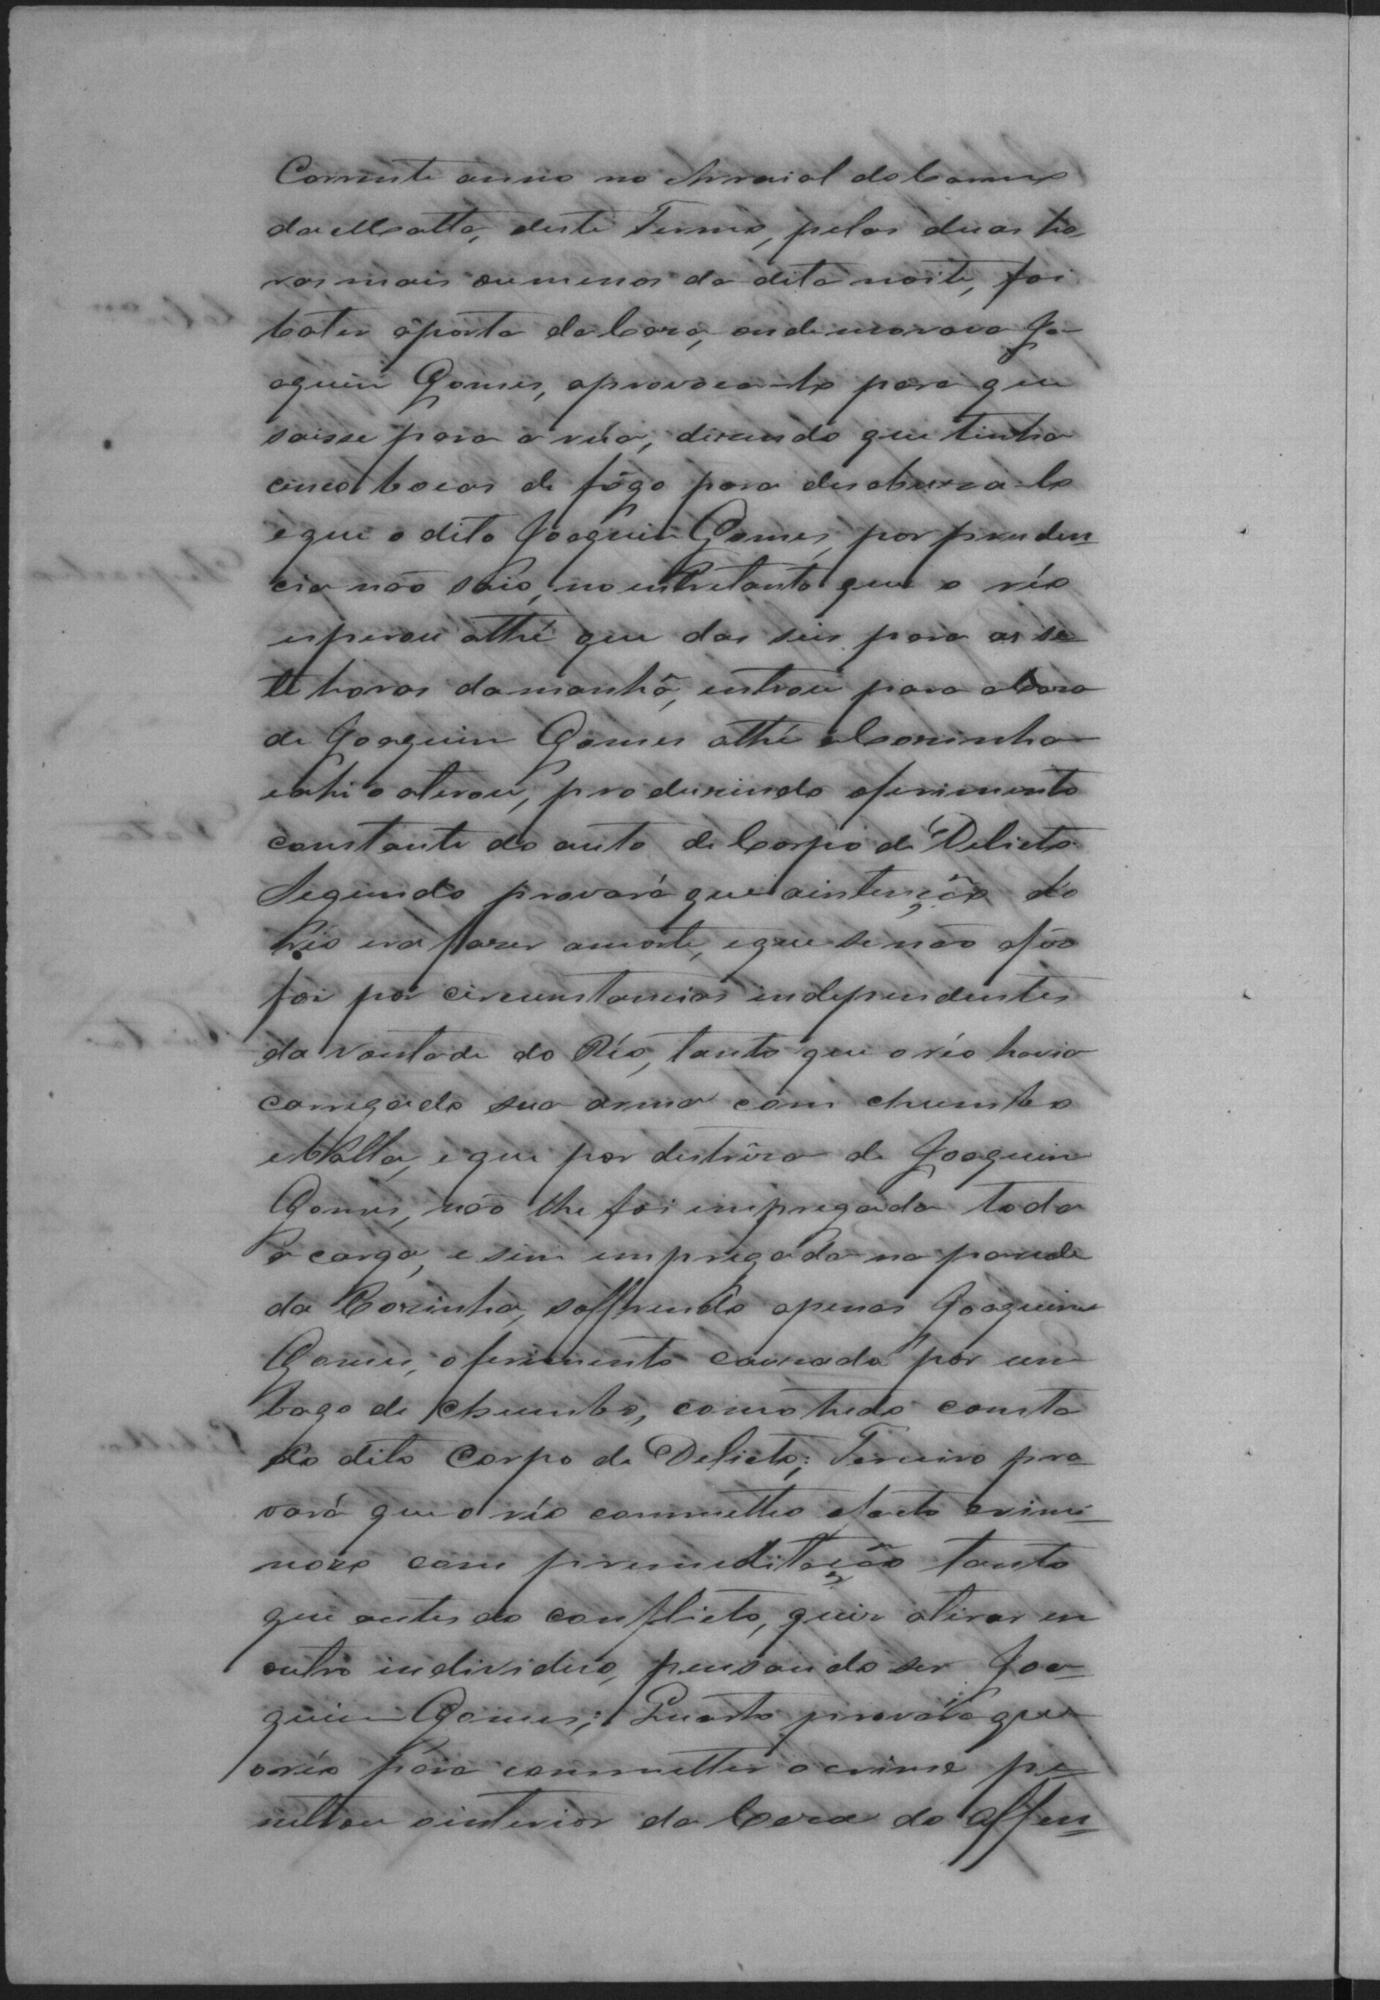 Corrente anno no Arraial do Carmo
da Matta, deste Termo, pelas duas ho
ras mais ou menos da dita noite, foi
bater áporta da Caza, onde morava Jo-
aquim Gomes, aprovoca-lo para que
saisse para a rúa, dizendo que tinha
cinco bocas de fôgo para
e que o dito Joaquim Gomes, por pruden
cia não saio, no entretanto que o réo
esperou athé que das seis para as se
te horas damanhã, entrou para aCaza
de Joaquim Gomes athé aCozinha
eahi o atirou, produzindo oferimento
constante do auto de Corpo de Delicto
Segundo provará que aintenção do
Réo era fazer amorte, eque senão ofez
foi por circunstancias independentes
da vontade do Réo, tanto que o réo havia
carregado sua arma com chumbo
eballa, e que por destrêza de Joaquim
Gomes, não lhe foi empregada toda
a carga, e sim empregada na parede
da Cozinha, soffrendo apenas Joaquim
Gomes, oferimento cauzado por um
bago de chumbo, como tudo consta
do dito Corpo de Delicto; Terceiro pro-
vará que o réo commetteo ofacto crimi-
nozo com premeditação tanto
que antes do conflicto, quiz atirar em
outro individuo, pensando ser Joa-
quim Gomes; Quarto provará que
oréo para commetter ocrime pe-
netrou ointerior da Caza do offen-